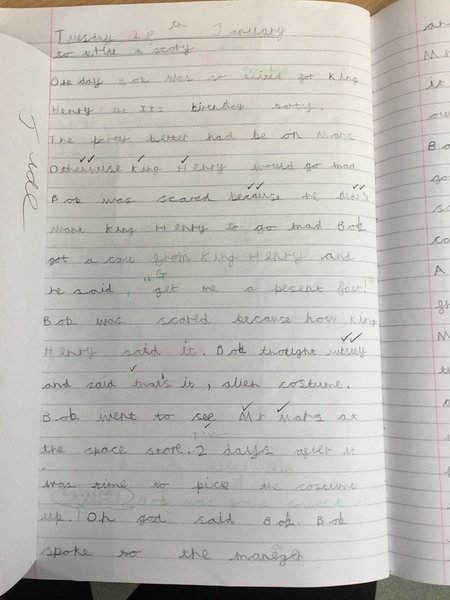 Tuesday 28th January
to write a story
One day Bob was so exited for King
Henry the III birthday party.
The party better had be on Mars
Otherwise King Henry would go mad
Bob was scared because he didn't
want King Henry to go mad. Bob
got a call from King Henry and
he said, "Get me a pesent fast!"
Bob was scared because how King
Henry said it. Bob thought
and said that's it, alien costume.
Bob went to see Mr Mars at
the space store. 2 days after it
was time to pick the costume
up. "Oh god" said Bob. Bob
spoke to the maneger
Jude